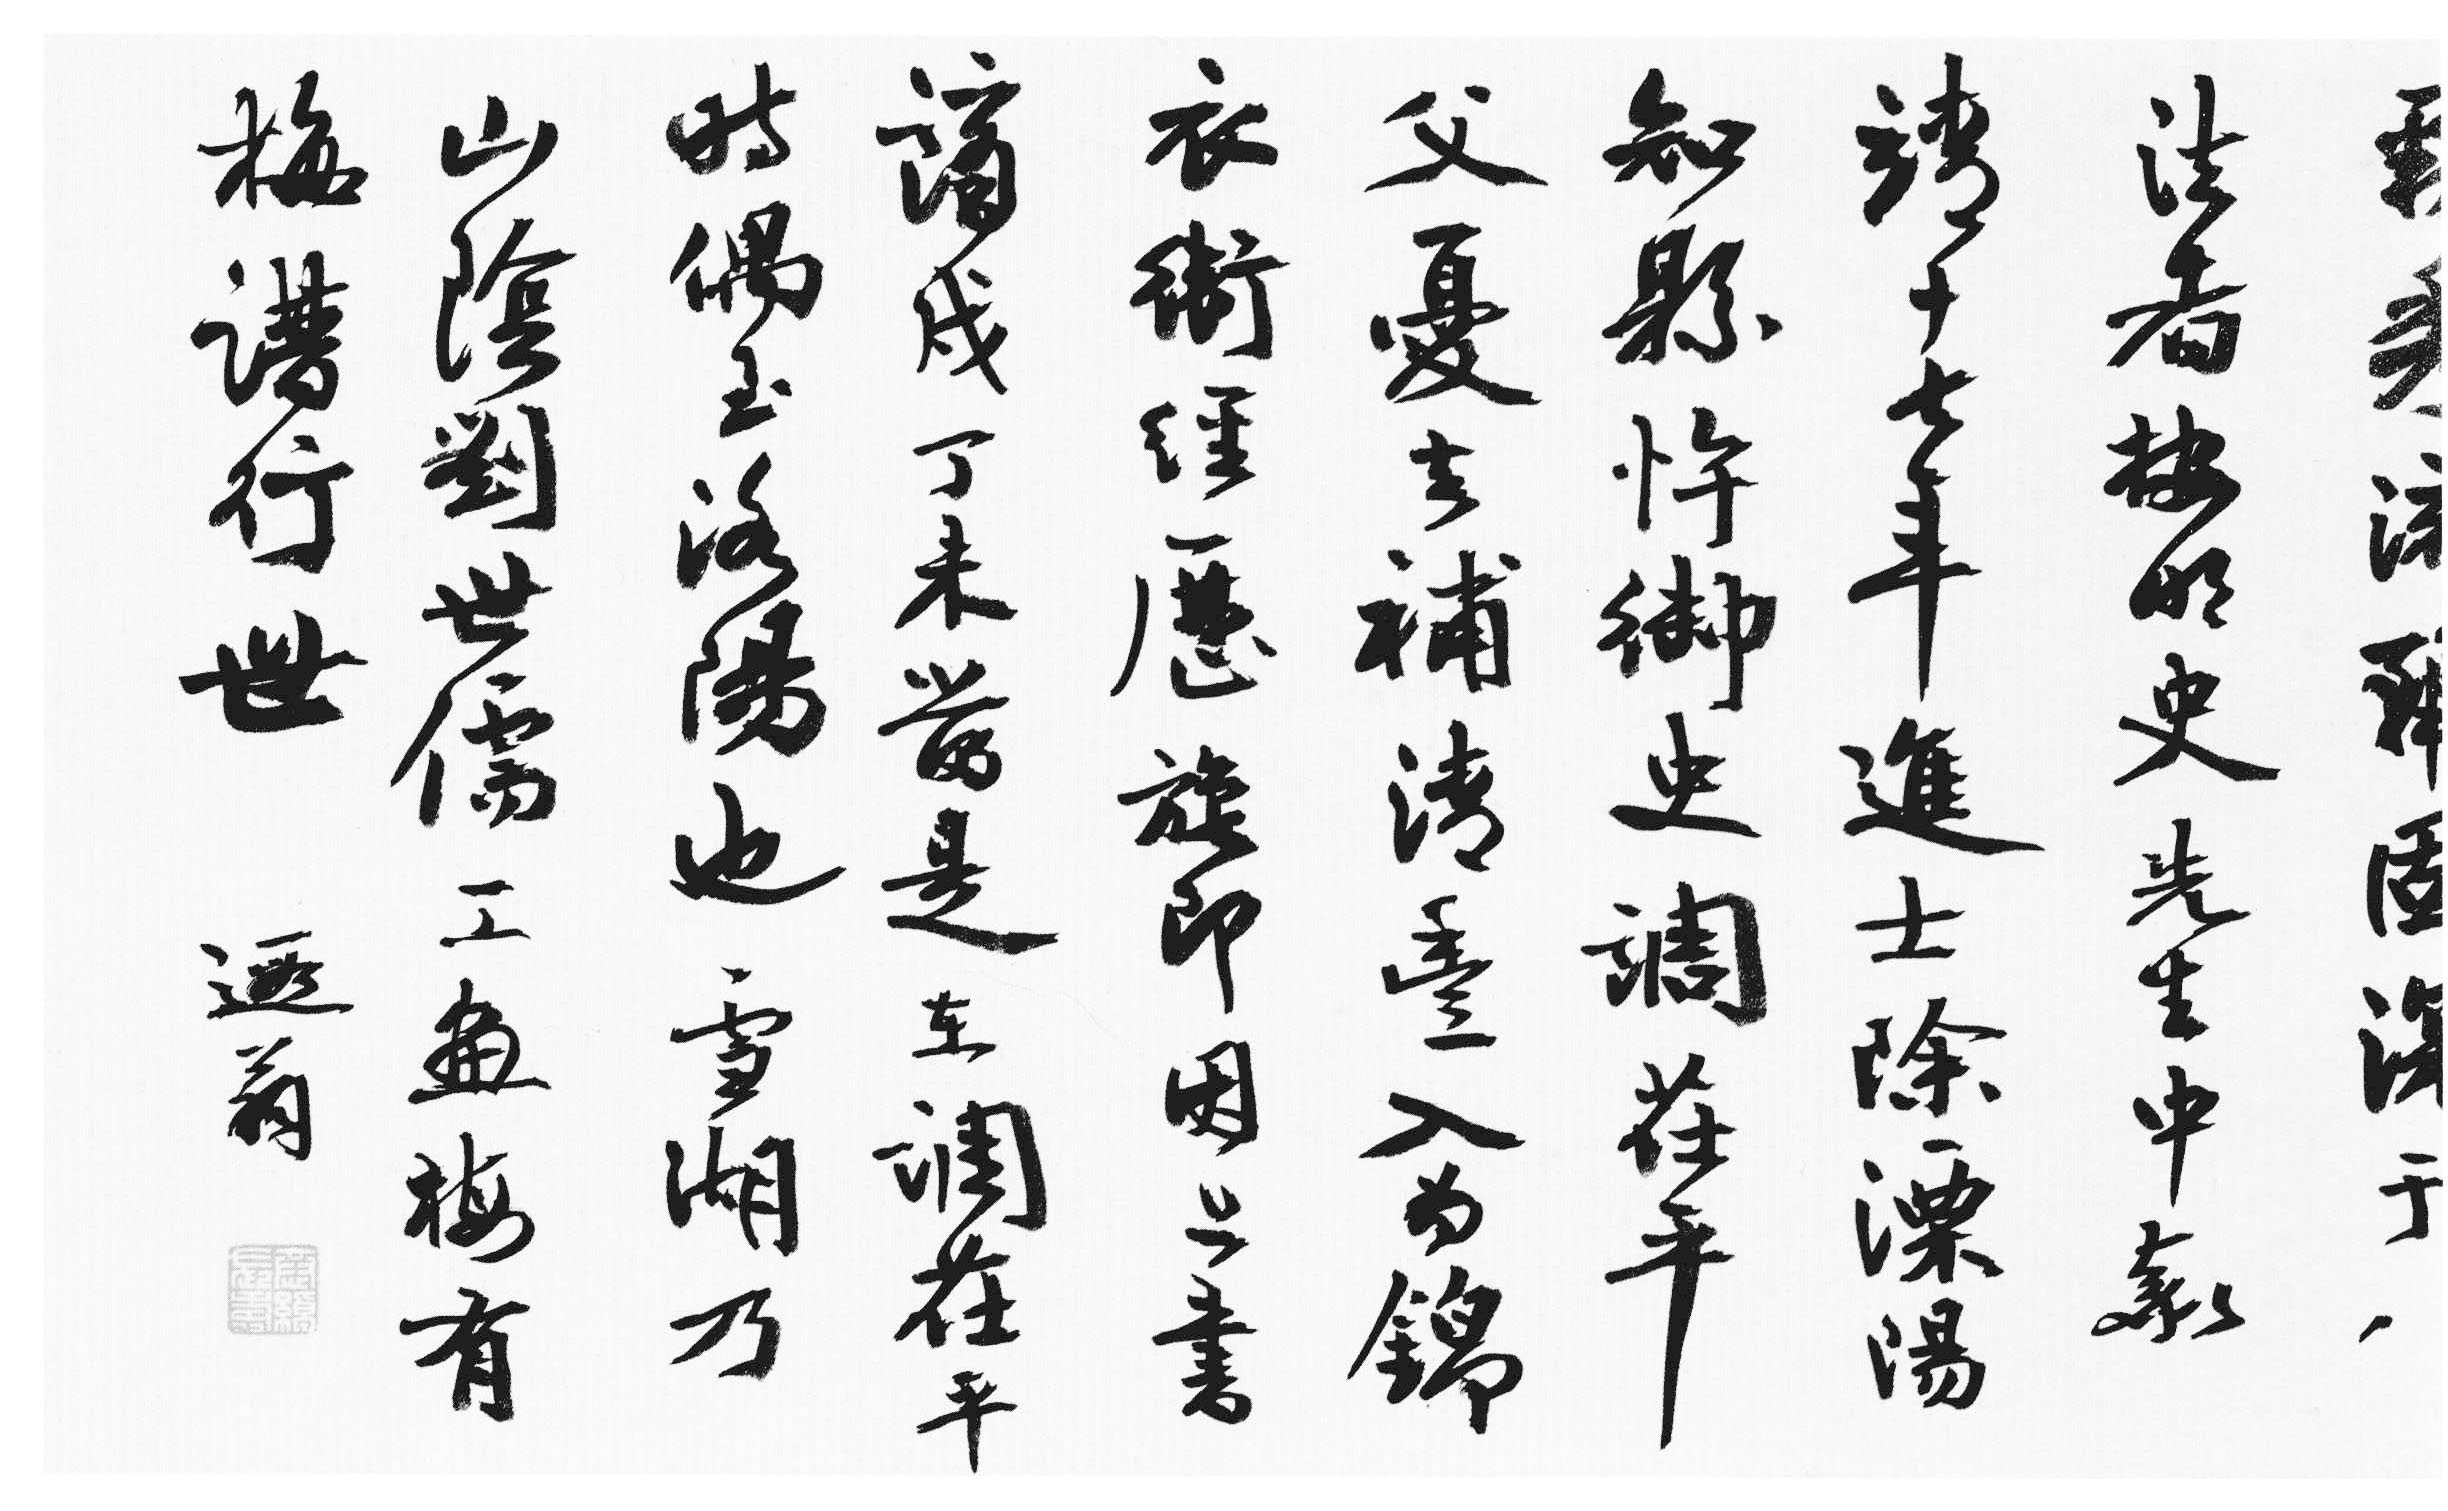 法者按明史先生中嘉
靖十七年進士除溧陽
知縣忤御史調茌平
父憂去補清豐入為錦
衣衛經歷旋即因上書
謫戍丁未當是在調茌平
時偶至洛陽也雪湖乃
山陰劉世儒工畫梅有
梅譜行世 遯翁